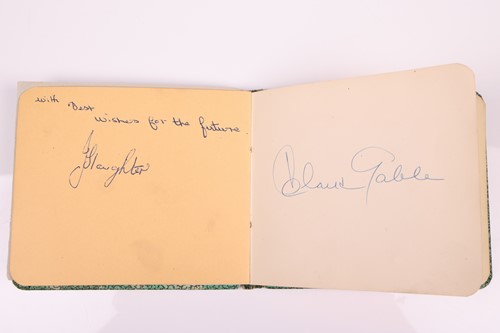 With Best
wishes for the future.
J Slaughter
Clark Gable